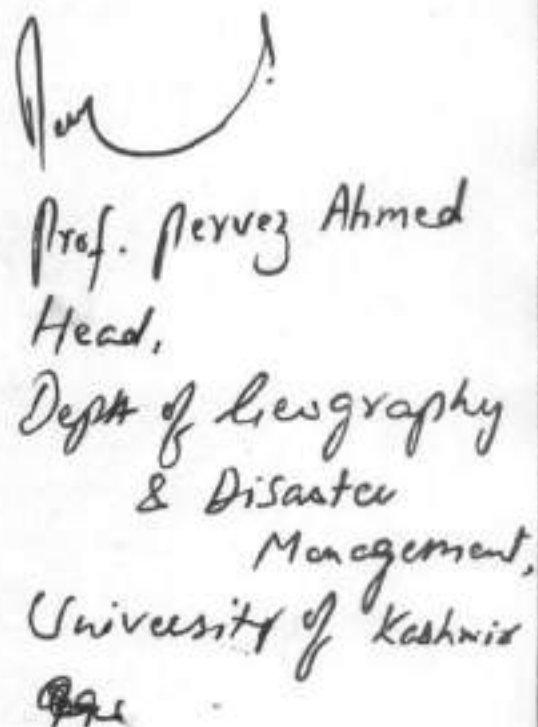 Prof. Pervez Ahmed
Head,
Deptt of Geography
& Disaster
Management,
University of Kashmir